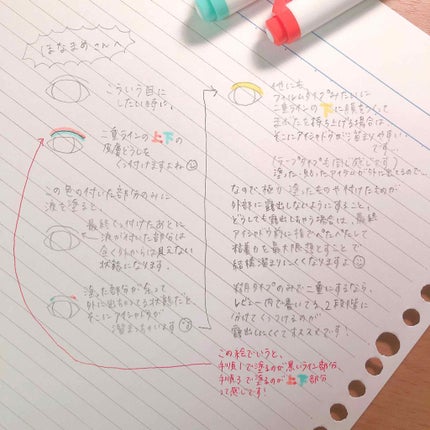 ほなまめさんへ
こういう目に
したい時に、
二重ラインの上下の
皮膚どうしを
くっ付けますよね
この色の付いた部分のみに
液を塗ると、
最終くっ付けたあとに
液が付いた部分は
全くの外からは見えない
状態になります。
塗った部分が
外に出ちゃってる状態だと
そこにアイシャドウが
溜まっちゃいます
他にも
フィルムタイプみたいに
二重ラインの下に膜をつくって
まぶたを持ち上げる場合は
そこにアイシャドウが溜まりやすい
です…
(テープタイプも同じ感じです)
塗った・貼ったアイテムが外に出るので…
なので、極力塗ったものや付けたものが
外部に露出しないようにすること。
どうしても露出しちゃう場合は、最終
アイシャドウ前に指でぺたぺたして
粘着力を最大限落とすことで
結構溜まりにくくなりますよ
タイプのみで二重にするなら、
レビュー内で書いてる2段階に
分けてくっつけるのが
露出しにくくてオススメです!
この絵でいうと、
手順1で塗るのが黒いライン部分、
手順3で塗るのが上下部分
って感じです!